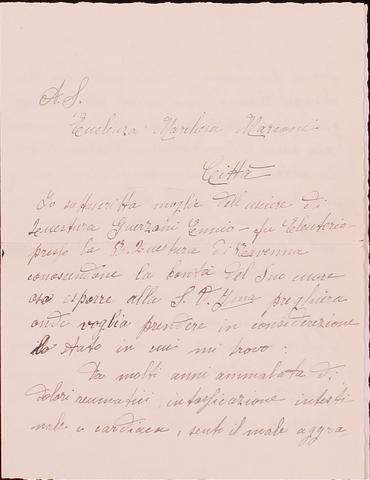 A. S.
Eccellenza Marchesa Marconi
Città
Io sottoscritta moglie dell'usciere di
Questura Guerzoni Ennio - fu Eleuterio
presso la R. Questura di Ravenna
conoscendone la bontà del Suo cuore
oso esporre alla S. V. Ill.ma preghiera
onde voglia prendere in considerazione
lo stato in cui mi trovo:
Da molti anni ammalata di
dolori reumatici, intossicazione intesti
nale e cardiaca, sento il male aggra-